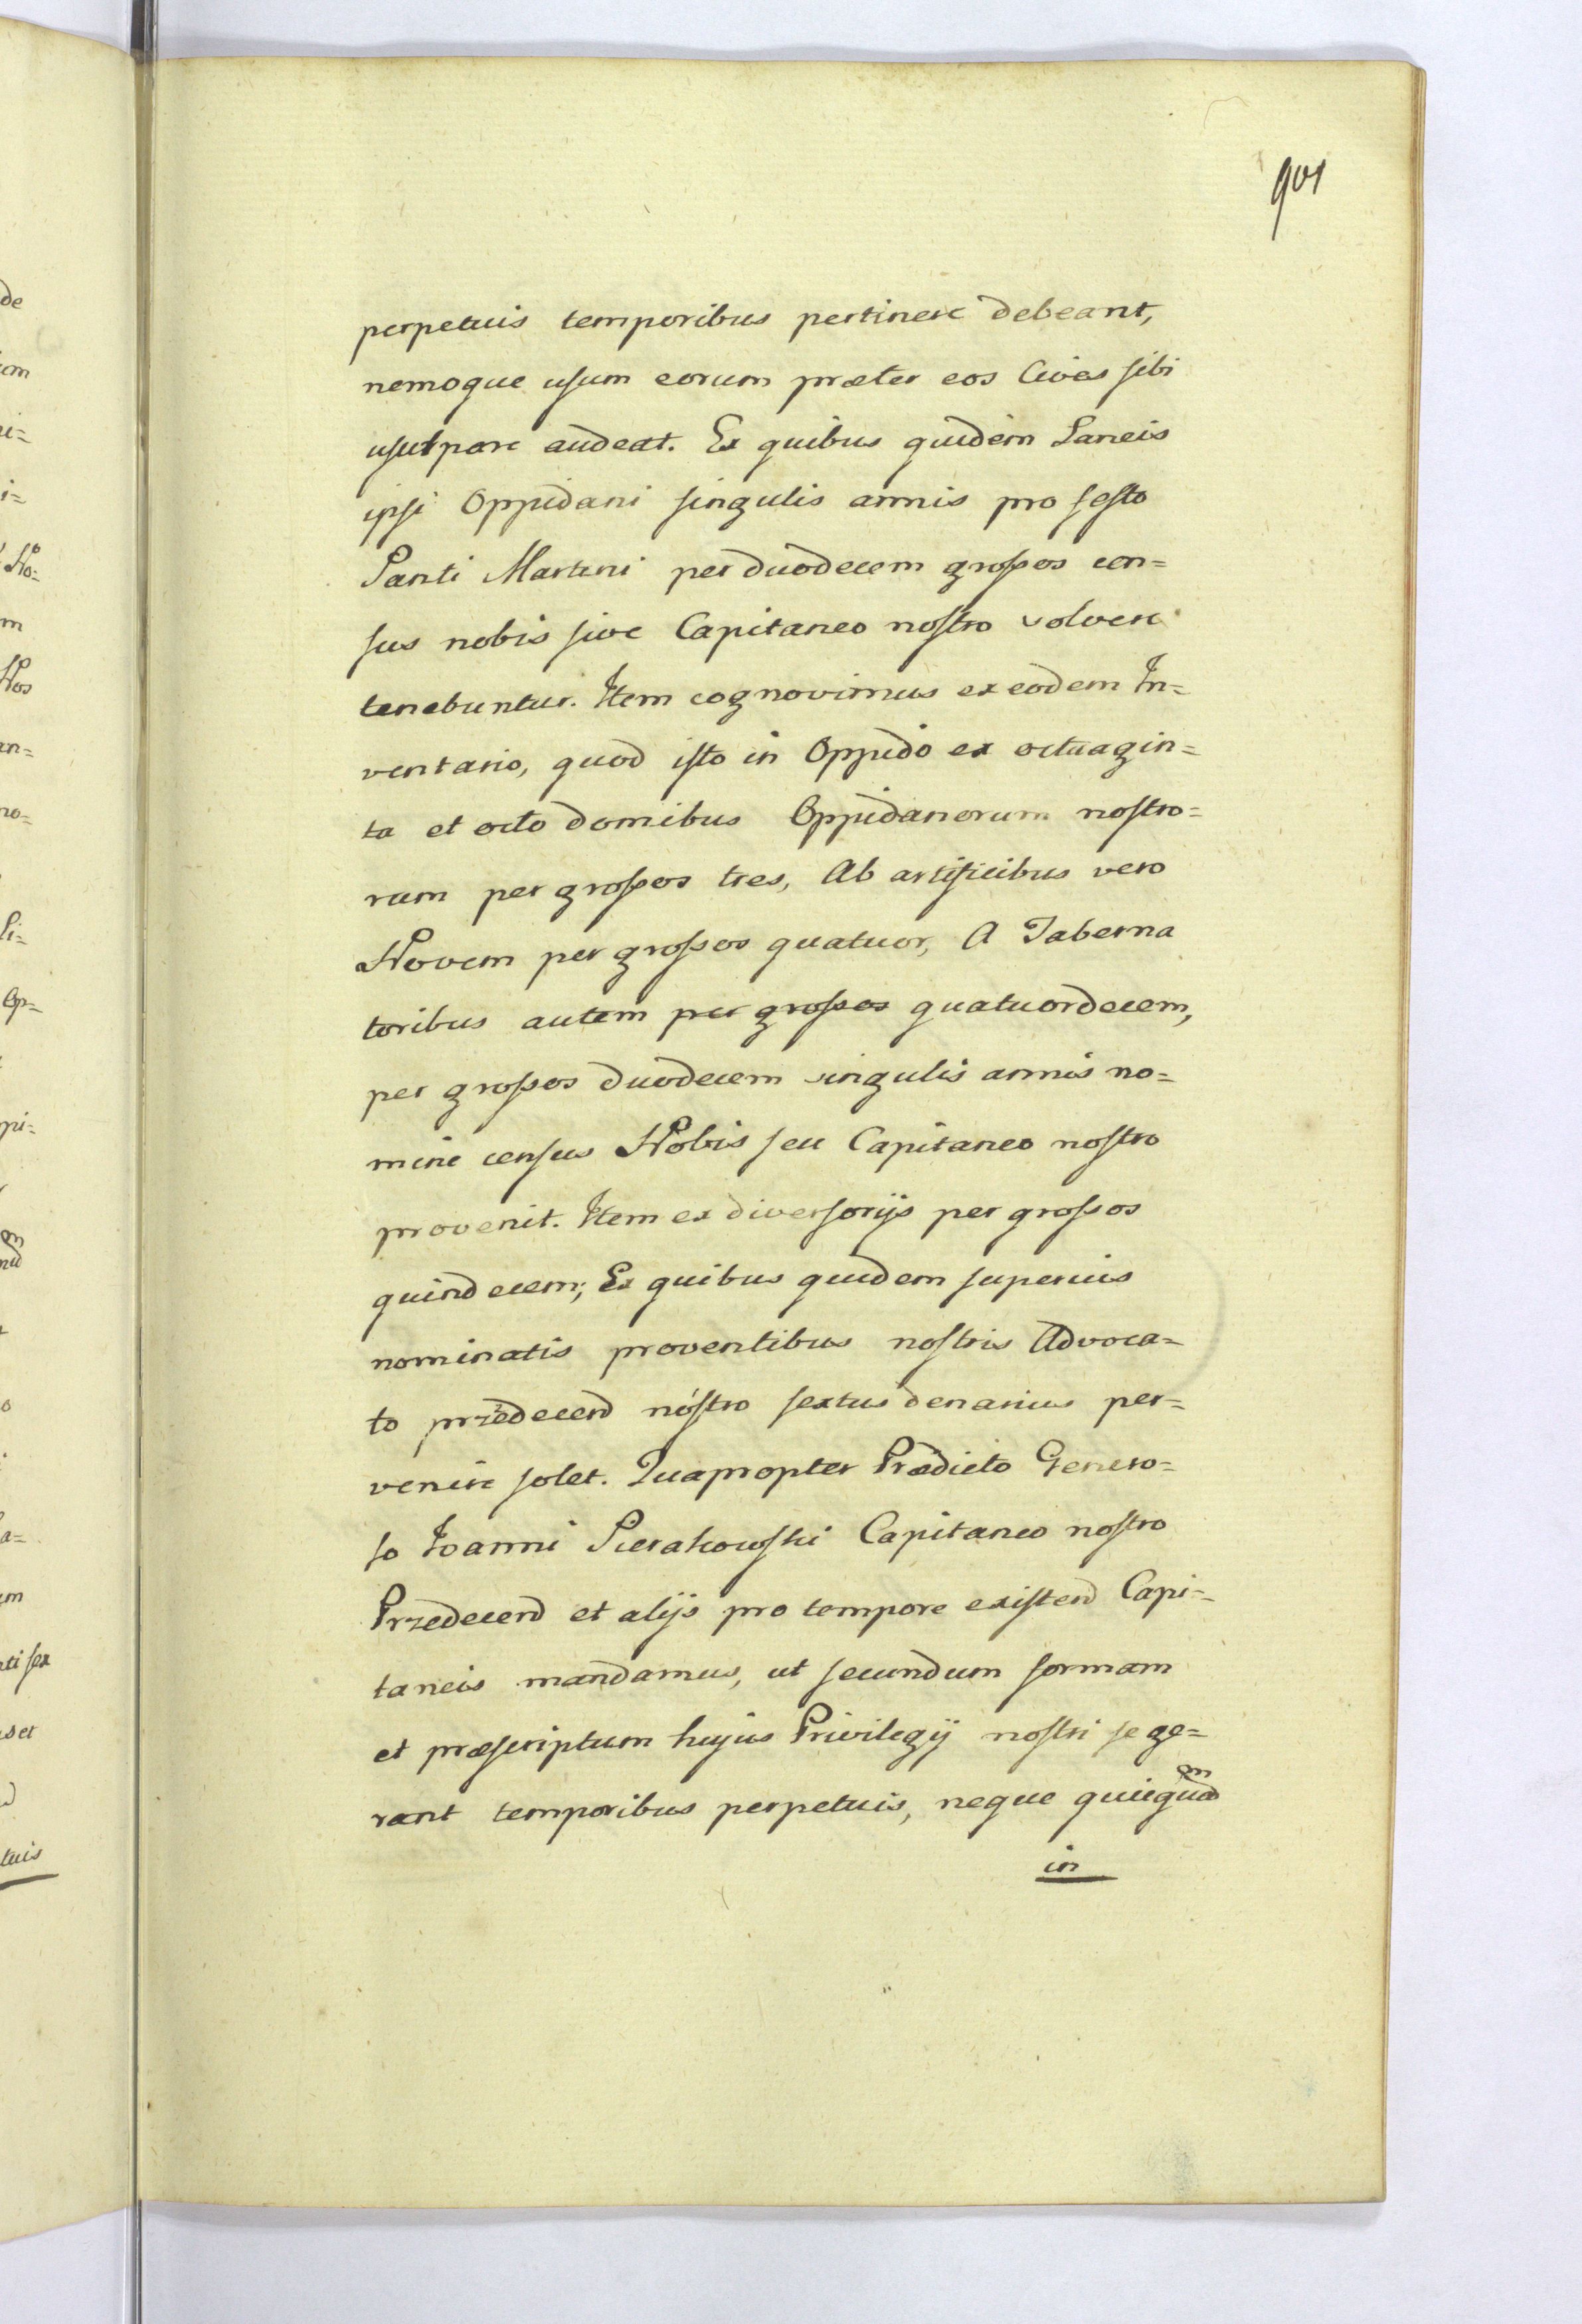 901
perpetuis temporibus pertinere debeant,
nemoque usum eorum præter eos Cives sibi
usurpare audeat. Ex quibus quidem Laneis
ipsi Oppidani singulis annis pro festo
Santi Martini per duodecem grossos cen=
sus nobis sive Capitaneo nostro solvere
tenebuntur. Item cognovimus ex eodem In=
ventario, quod isto in Oppido ex octuagin=
ta et octo domibus Oppidanorum nostro=
rum per grossos tres, Ab artificibus vero
Novem per grossos quatuor, A Taberna
toribus autem per grossos quatuordecem,
per grossos duodecem singulis annis no=
mine census Nobis seu Capitaneo nostro
provenit. Item ex diversorijs per grossos
quindecem; Ex quibus quidem superius
nominatis proventibus nostris Advoca=
to przedecend nostro sextus denarius per=
venire solet. Quapropter Prædicto Genero=
so Joanni Pierakowski Capitaneo nostro
Przedecend et alijs pro tempore existend Capi=
taneis mandamus, ut secundum formam
et præscriptum hujus Privilegij nostri se ge=
rant temporibus perpetuis, neque quicquam
in
de
Ho=
m
Nos
an=
no=
Li=
Op=
pi=
a=
um
nti sex
tuis